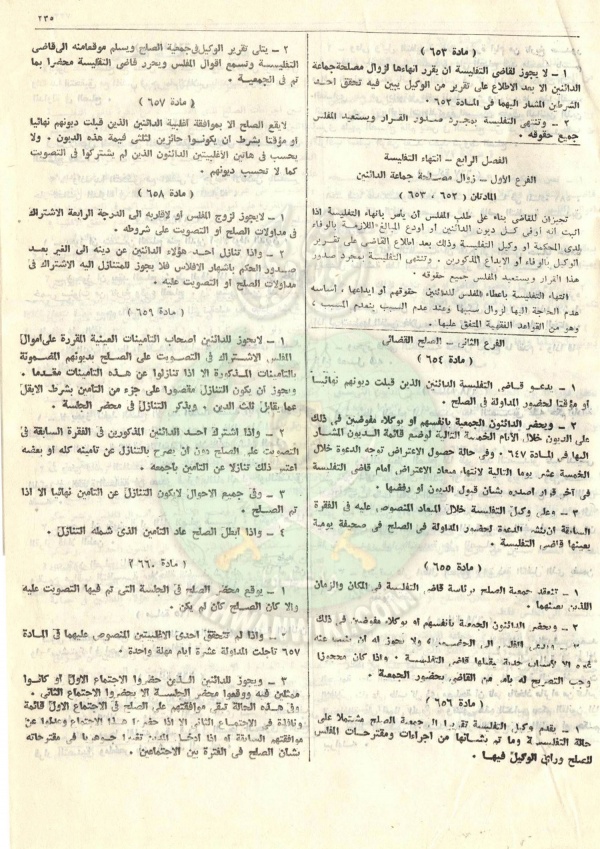 ٢٣٥
( مادة ٦٥٣ )
١ – لا يجوز لقاضى التفليسة ان يقرر انهاءها لزوال مصلحة جماعة
الدائنين الا بعد الاطلاع على تقرير من الوكيل يبين فيه تحقق احد
الشرطين المشار اليهما فى المادة ٦٥٢ .
٢ – وتنتهى التفليسة بمجرد صدور القرار ويستعيد المفلس
جميع حقوقه .
الفصل الرابع – انتهاء التفليسة
الفرع الأول – زوال مصلحة جماعة الدائنين
المادتان ( ٦٥٢ ، ٦٥٣ )
تجيزان للقاضى بناء على طلب المفلس ان يأمر بانهاء التفليسة إذا
اثبت انه أوفى كل ديون الدائنين او اودع المبالغ اللازمة بالوفاء
لدى المحكمة او وكيل التفليسة وذلك بعد اطلاع القاضى على تقرير
الوكيل بالوفاء او الابداع المذكورين . وتنتهى التفليسة بمجرد صدور
هذا القرار ويستعيد المفلس جميع حقوقه .
انتهاء التفليسة باعطاء المفلس للدائنين حقوقهم أو ايداعها ، اساسه
عدم الحاجة اليها لزوال سببها وعند عدم السبب ينعدم المسبب ،
وهو من القواعد الفقهية المتفق عليها .
الفرع الثانى – الصلح القضائى
( مادة ٦٥٤ )
١ – يدعو قاضى التفليسة الدائنين الذين قبلت ديونهم نهائيا
أو مؤقتا لحضور المداولة فى الصلح .
٢ – ويحضر الدائنون الجمعية بانفسهم او بوكلاء مفوضين فى ذلك
على الديون خلال الأيام الخمسة التالية لوضع قائمة الديون المشار
اليها فى المادة ٦٤٧ . وفى حالة حصول الاعتراض توجه الدعوة خلال
الخمسة عشر يوما التالية لانتهاء ميعاد الاعتراض امام قاضى التفليسة
فى آخر قرار اصدره بشأن قبول الديون او رفضها .
٣ – وعلى وكيل التفليسة خلال الميعاد المنصوص عليه فى الفقرة
السابقة ان ينشر الدعوة لحضور المداولة فى الصلح فى صحيفة يومية
يعينها قاضى التفليسة .
( مادة ٦٥٥ )
١ – تنعقد جمعية الصلح برئاسة قاضى التفليسة فى المكان والزمان
اللذين يعينهما .
٢ – ويحضر الدائنون الجمعية بانفسهم او بوكلاء مفوضين فى ذلك
٣ – ويدعى المفلس الى الجمعية ولا يجوز له ان ينيب عنه
غيره الا لاسباب جدية يقبلها قاضى التفليسة . واذا كان محجوزا
وجب التصريح له بامر من القاضى بحضور الجمعية .
( مادة ٦٥٦ )
١ – يقدم وكيل التفليسة تقريرا الى جمعية الصلح مشتملا على
حالة التفليسة وما تم بشأنها من اجراءات ومقترحات المفلس
للصلح وراى الوكيل فيها .
٢ – يتلى تقرير الوكيل فى جمعية الصلح ويسلم موقعا منه الى قاضى
التفليسة وتسمع اقوال المفلس ويحرر قاضى التفليسة محضرا بما
تم فى الجمعية .
( مادة ٦٥٧ )
لا يقع الصلح الا بموافقة اغلبية الدائنين الذين قبلت ديونهم نهائيا
او مؤقتا بشرط ان يكونوا حائزين لثلثى قيمة هذه الديون . ولا
يحسب فى هاتين الاغلبيتين الدائنون الذين لم يشتركوا فى التصويت
كما لا تحسب ديونهم .
( مادة ٦٥٨ )
١ – لا يجوز لزوج المفلس او لاقاربه الى الدرجة الرابعة الاشتراك
فى مداولات الصلح او التصويت على شروطه .
٢ – واذا تنازل احد هؤلاء الدائنين عن دينه الى الغير بعد
صدور الحكم باشهار الافلاس فلا يجوز للمتنازل اليه الاشتراك فى
مداولات الصلح او التصويت عليه .
( مادة ٦٥٩ )
١ – لا يجوز للدائنين اصحاب التأمينات العينية المقررة على اموال
المفلس الاشتراك فى التصويت على الصلح بديونهم المضمونة
بالتأمينات المذكورة الا اذا تنازلوا عن هذه التأمينات مقدما .
ويجوز أن يكون التنازل مقصورا على جزء من التأمين بشرط الا يقل
عما يقابل ثلث الدين . ويذكر التنازل فى محضر الجلسة .
٢ – واذا اشترك احد الدائنين المذكورين فى الفقرة السابقة فى
التصويت على الصلح دون ان يصرح بالتنازل عن تأمينه كله او بعضه
اعتبر ذلك تنازلا عن التأمين باجمعه .
٣ – وفى جميع الاحوال لا يكون التنازل عن التأمين نهائيا الا اذا
تم الصلح .
٤ – واذا ابطل الصلح عاد التأمين الذى شمله التنازل .
( مادة ٦٦٠ )
١ – يوقع محضر الصلح فى الجلسة التى تم فيها التصويت عليه
والا كان الصلح كان لم يكن .
٢ – واذا لم تتحقق احدى الاغلبيتين المنصوص عليهما فى المادة
٦٥٧ تأجلت المداولة عشرة ايام مهلة واحدة .
٣ – ويجوز للدائنين الذين حضروا الاجتماع الاول او كانوا
ممثلين فيه ووقعوا محضر الجلسة الا يحضروا الاجتماع الثانى .
وفى هذه الحالة تبقى موافقتهم على الصلح فى الاجتماع الاول قائمة
ونافذة فى الاجتماع الثانى الا اذا حضروا هذا الاجتماع وعدلوا عن
موافقتهم السابقة او اذا ادخل المدين تغييرا جوهريا فى مقترحاته
بشأن الصلح فى الفترة بين الاجتماعين .